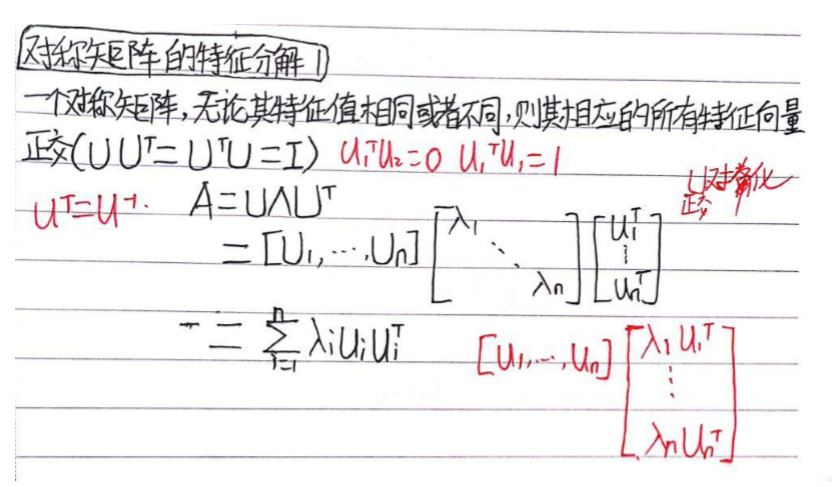 对称矩阵的特征分解
一个对称矩阵,无论其特征值相同或者不同,则其相应的所有特征向量
正交(UUᵀ=UᵀU=I) u₁ᵀu₂=0 u₁ᵀu₁=1
Uᵀ=U⁻¹. A=UΛUᵀ
正交 对角化
=[U₁,⋯,Uₙ][λ₁ ⋱ λₙ][u₁ᵀ ⋮ uₙᵀ]
=∑ᵢ₌₁ⁿ λᵢuᵢuᵢᵀ [u₁,⋯,uₙ][λ₁u₁ᵀ ⋮ λₙuₙᵀ]